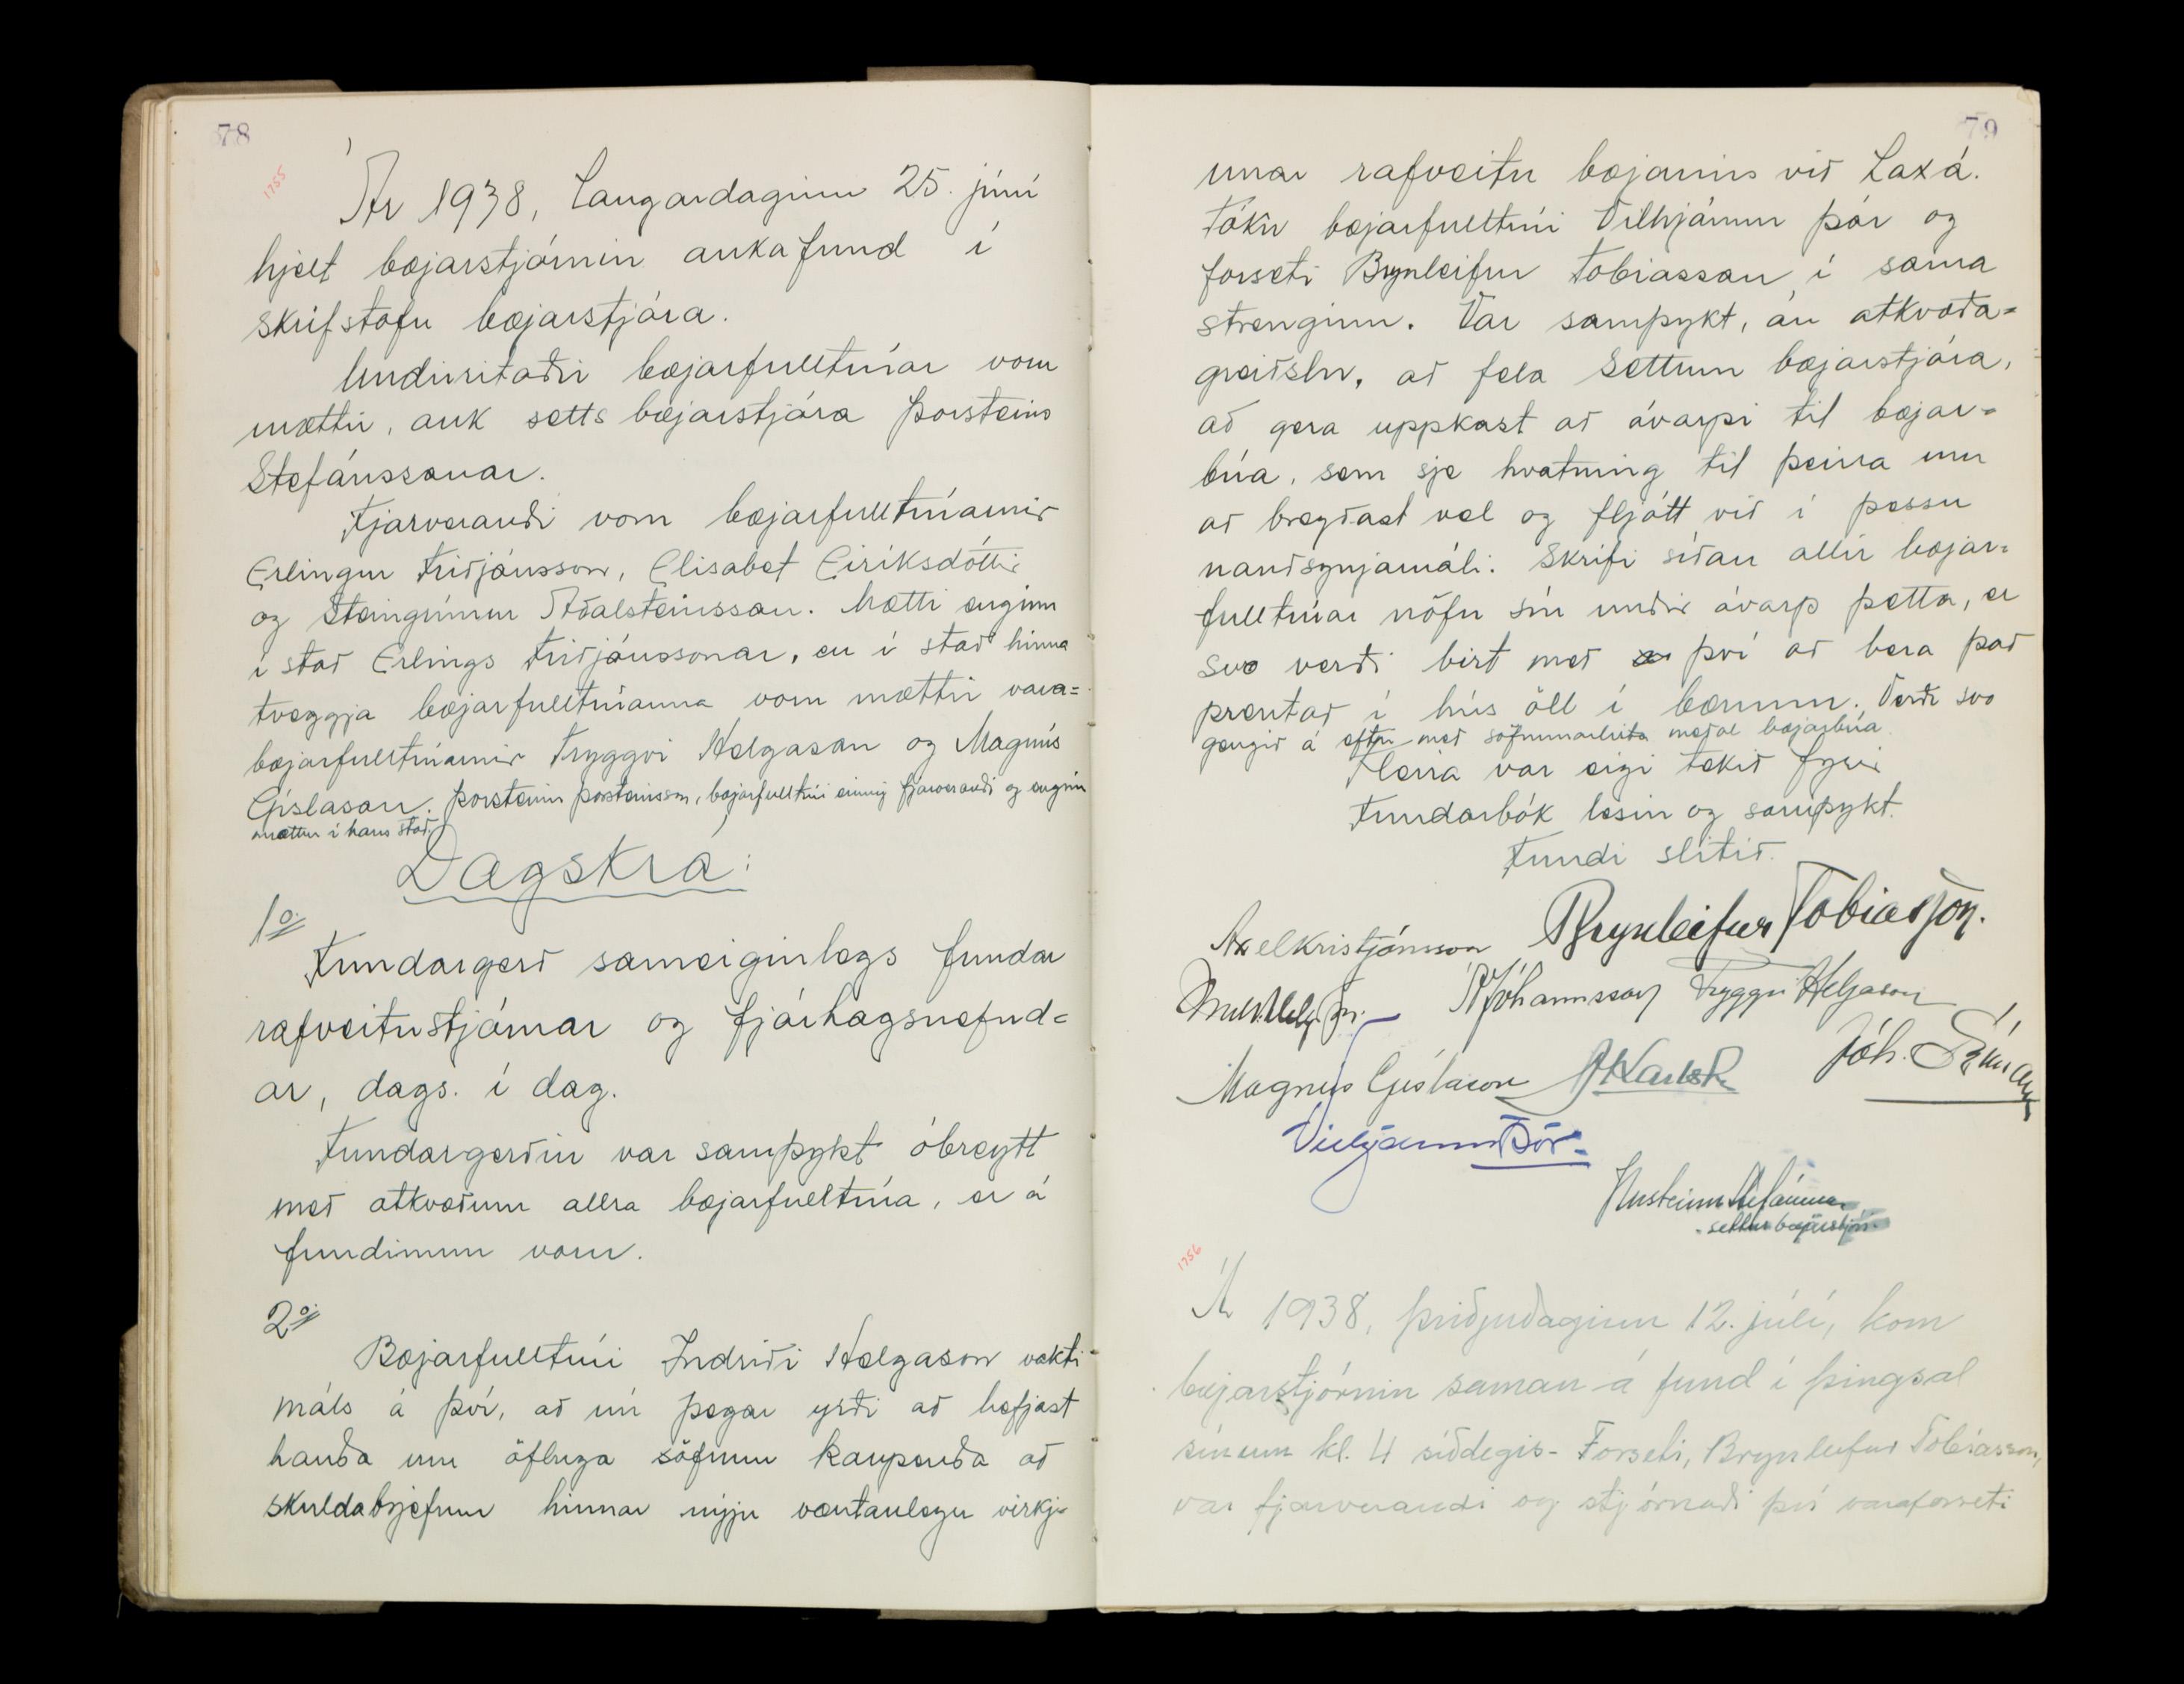 78
1755
Ár 1938, Laugardaginn 25. júní
hjelt bæjarstjórnin aukafund í
skrifstofu bæjarstjóra.
Undirritaðir bæjarfulltrúar voru
mættir, auk setts bæjarstjóra Þorsteins
Stefánssonar.
Fjarverandi voru bæjarfulltrúarnir
Erlingur Friðjónsson, Elisabet Eiríksdóttir
og Steingrímur Aðalsteinsson. Mætti enginn
í stað Erlings Friðjónssonar, en í stað hinna
tveggja bæjarfulltrúanna voru mættir vara=
bæjarfulltrúarnir Tryggvi Helgason og Magnús
Gíslason. Þorsteinn Þorsteinsson, bæjarfulltrúi einnig fjarverandi og enginn
mættur í hans stað.
Dagskrá:
1o.
Fundargerð sameiginlegs fundar
rafveitustjórnar og fjárhagsnefnd=
ar, dags. í dag.
Fundargerðin var samþykt óbreytt
með atkvæðum allra bæjarfulltrúa, er á
fundinum voru.
2o.
Bæjarfulltrúi Indriði Helgason vakti
máls á því, að nú þegar yrði að hefjast
handa um öfluga söfnun kaupenda að
skuldabrjefum hinnar nýju væntanlegu virkj-
79
unar rafveitu bæjarins við Laxá.
Tóku bæjarfulltrúi Vilhjálmur Þór og
forseti Brynleifur Tobiasson í sama
strenginn. Var samþykt, án atkvæða=
greiðslu, að fela settum bæjarstjóra,
að gera uppkast að ávarpi til bæjar=
búa, sem sje hvatning til þeirra um
að bregðast vel og fljótt við í þessu
nauðsynjamáli. Skrifi síðan allir bæjar=
fulltrúar nöfn sín undir ávarp þetta, er
svo verði birt með því að bera það
prentað í hús öll í bænum. Verði svo
gengið á eftir með söfnunarlista meðal bæjarbúa.
Fleira var eigi tekið fyrir
Fundarbók lesin og samþykt.
Fundi slitið.
Brynleifur Tobiasson.
Axel Kristjánsson
Jóhannsson Tryggvi Helgason
Magnús Gíslason
Vilhjálmur Þór
Þorsteinn Stefánsson
settur bæjarstjóri
1756
Ár 1938, þriðjudaginn 12. júlí, kom
bæjarstjórnin saman á fund í þingsal
sínum kl. 4 síðdegis- Forseti, Brynleifur Tobiasson,
var fjarverandi og stjórnaði því varaforseti